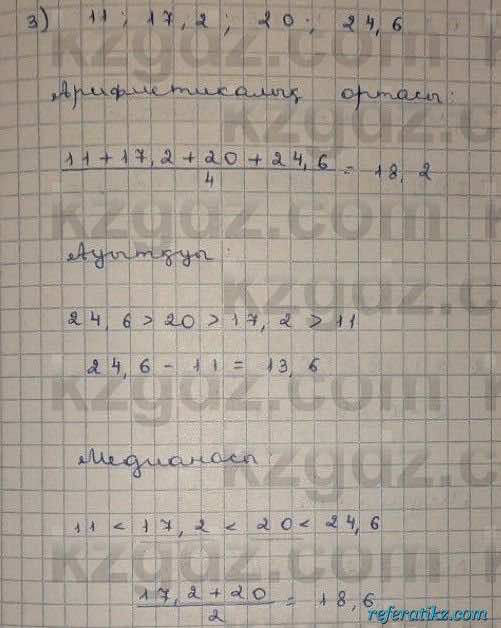 3) 11; 17,2; 20; 24,6
Арифметикалық ортасы:
11+17,2+20+24,6
4
= 18,2
Ауытқуы:
24,6 > 20 > 17,2 > 11
24,6 - 11 = 13,6
Медианасы:
11 < 17,2 < 20 < 24,6
17,2+20
2
= 18,6
kzgdz.com
referatikz.com